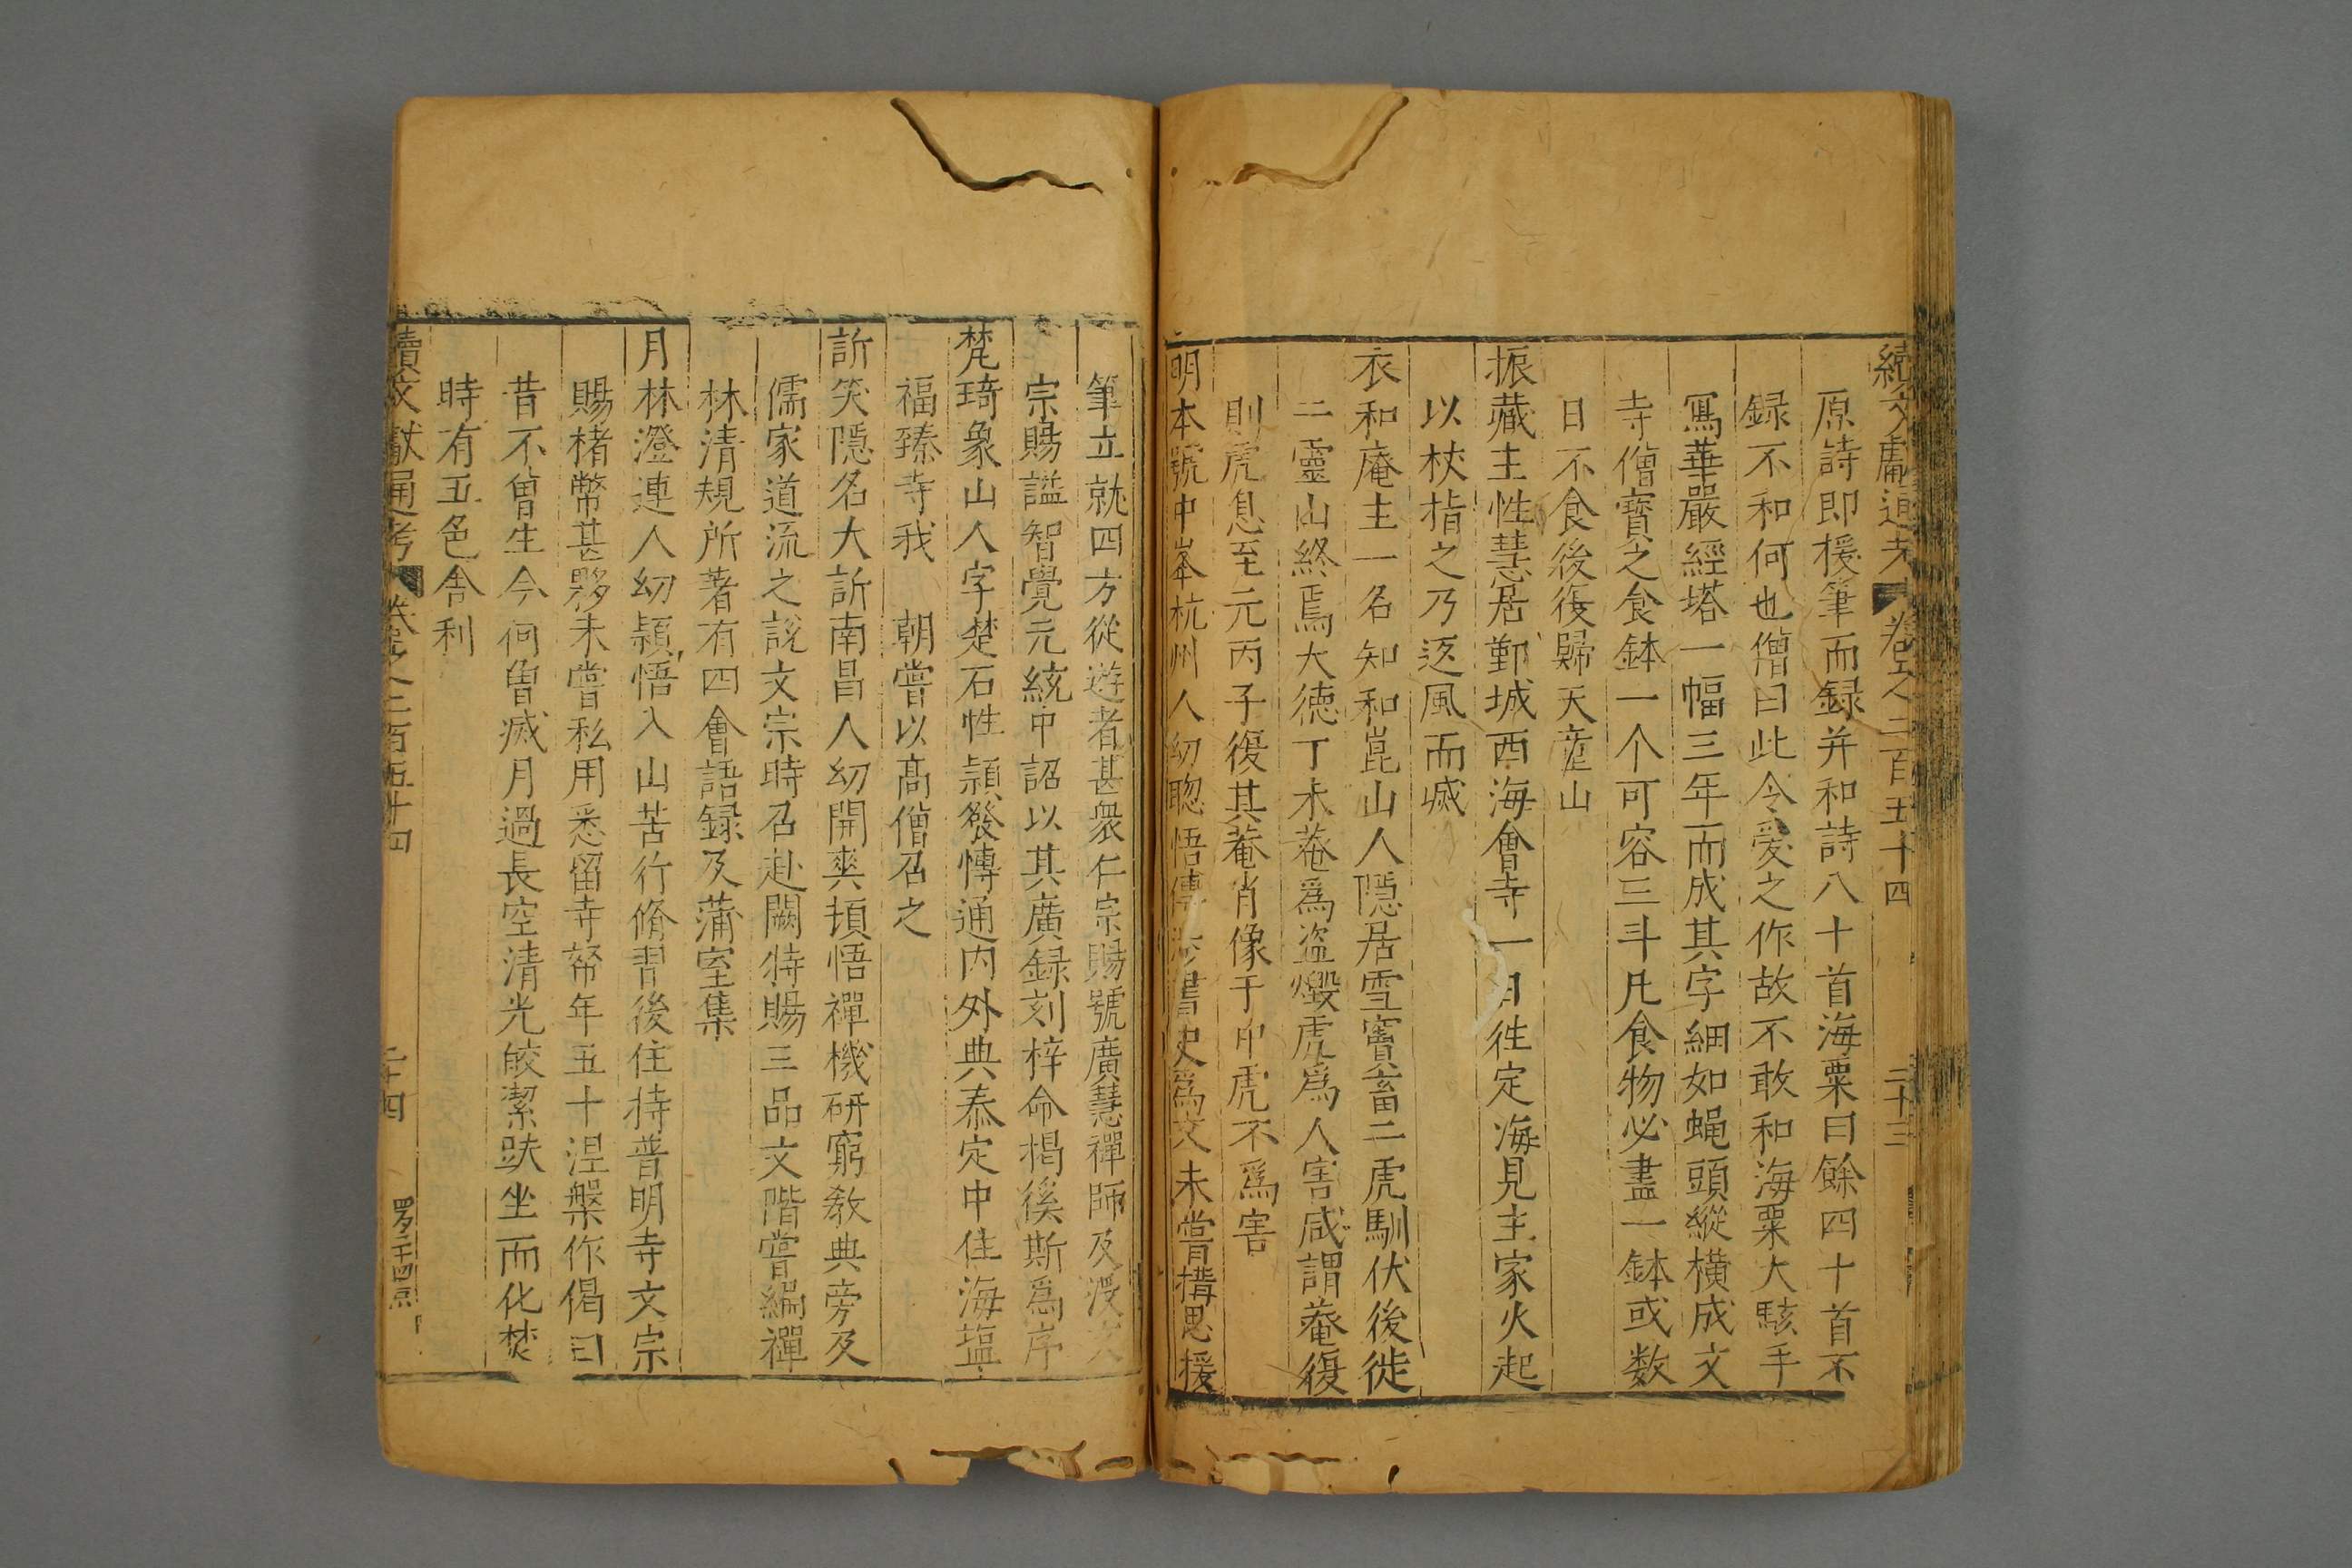 續文獻通考 卷之二百五十四 二十三
原詩即援筆而録并和詩八十首海粟曰餘四十首不
録不和何也僧曰此令愛之作故不敢和海粟大駭手
寫華嚴經塔一幅三年而成其字細如蝇頭縱横成文
寺僧寳之食鉢一个可容三斗凡食物必盡一鉢或数
日不食後復歸天童山
振藏主性慧居鄞城西海會寺一日徃定海見主家火起
以杖指之乃返風而滅
衣和庵主一名知和崑山人隱居雪竇畜二虎馴伏後徙
二靈山終焉大德丁未菴爲盗燬虎爲人害咸謂菴復
則虎息至元丙子復其菴肖像于中虎不爲害
明本號中峯杭州人幼聰悟傳涉書史爲文未嘗搆思援
筆立就四方從遊者甚衆仁宗賜號廣慧禪師及没文
宗賜謚智覺元統中詔以其廣録刻梓命揭徯斯爲序
梵琦象山人字楚石性頴發愽通内外典泰定中住海塩
福臻寺我 朝嘗以髙僧召之
訢笑隱名大訢南昌人幼開爽頓悟禪機研窮教典旁及
儒家道流之說文宗時召赴闕特賜三品文階嘗編禪
林清規所著有四會語録及蒲室集
月林澄連人幼頴悟入山苦行脩習後住持普明寺文宗
賜楮幣甚夥未嘗私用悉留寺帑年五十涅槃作偈曰
昔不曾生今何曾滅月過長空清光皎潔趺坐而化焚
時有五色舎利
續文獻通考 卷之二百五十四 二十四